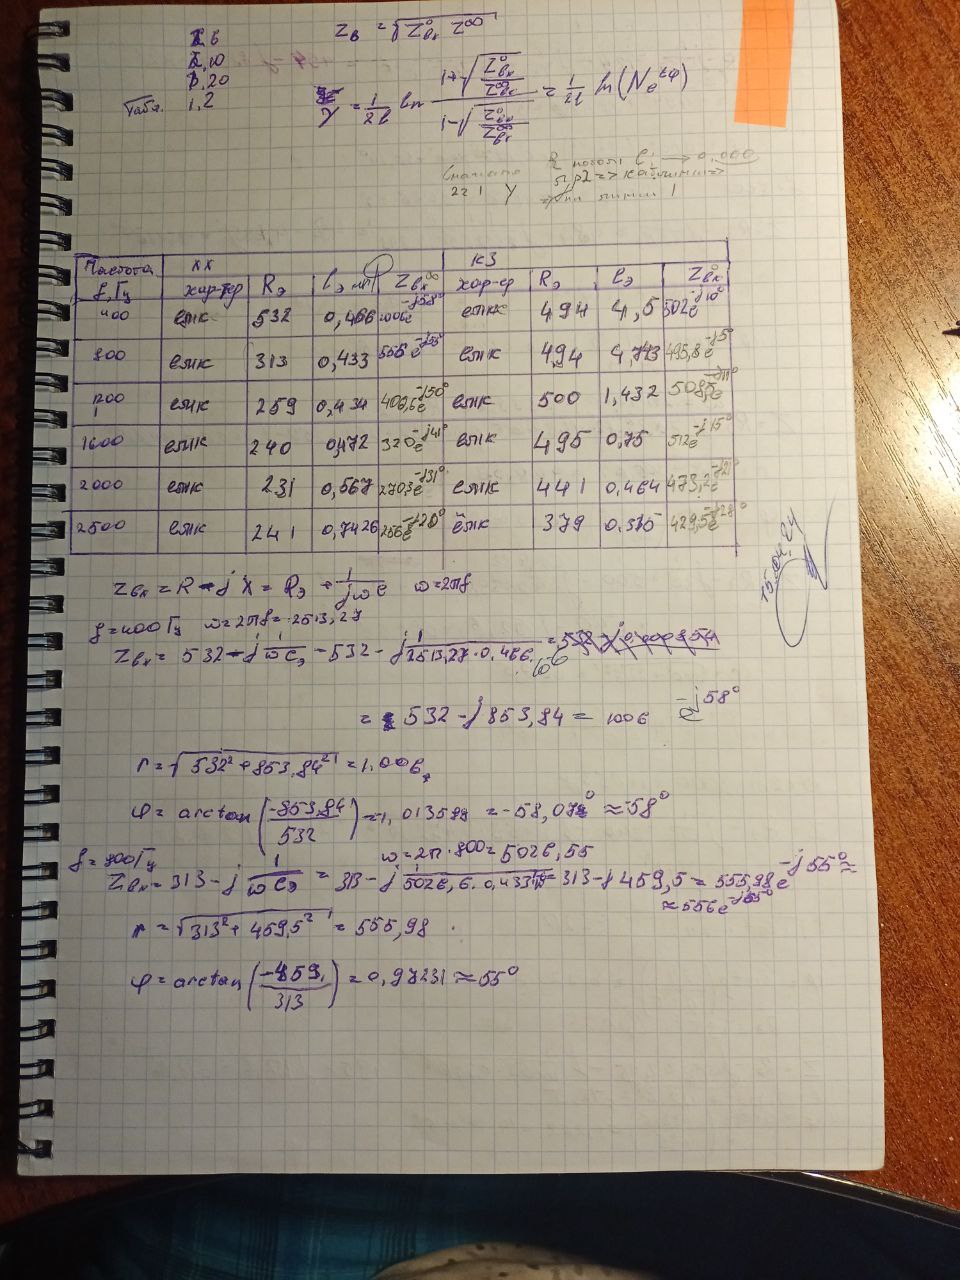 1,10
1,20
Табл. 1,2
Zв = √(Zвх⁰ Z^∞)
γ = 1/2l ln (1+√(Zвх⁰/Zвх^∞))/(1-√(Zвх⁰/Zвх^∞)) = 1/2l ln(N e^φ)
0,000
γ
Частота f, Гц | ХХ | КЗ
хар-тер | Rэ | Cэ | Zвх^∞ | хар-ер | Rэ | Cэ | Zвх⁰
400 | емк | 532 | 0,466 | 1006e^-j58° | емк | 494 | 4,5 | 502e^-j10°
800 | емк | 313 | 0,433 | 556e^-j55° | емк | 494 | 4,743 | 495,8e^-j5°
1200 | емк | 259 | 0,434 | 400,5e^-j50° | емк | 500 | 1,432
1600 | емк | 240 | 0,472 | 320e^-j41° | емк | 495 | 0,75 | 512e^-j15°
2000 | емк | 231 | 0,567 | 270,3e^-j31° | емк | 441 | 0,464 | 473,2e^-j21°
2500 | емк | 241 | 0,7426 | 256e^-j20° | емк | 379 | 0.315 | 429,5e^-j28°
Zвх = R - jX = Rэ + 1/jωC ω=2πf
f=400Гц ω=2πf=2513,27
Zвх = 532 - j 1/ωCэ = 532 - j 1/2513,27·0.466·10⁻⁶ =
= 532 - j853,84 = 1006 e^-j58°
r = √532²+853,84² = 1.006
φ = arctan(-853,84/532) = -1,013599 = -58,07° ≈ 58°
f = 800Гц ω = 2π·800 = 5026,55
Zвх = 313 - j 1/ωCэ = 313 - j 1/5026,6·0,433 = 313 - j459,5 = 555,98e^-j55° ≈
≈ 556e^-j55°
r = √313²+459,5² = 555,98
φ = arctan(-459,/313) = 0,97231 ≈ 55°
15.04.24